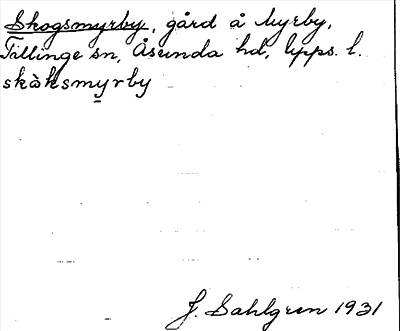 Skogsmyrby, gård å Myrby,
Tillinge sn, Åsunda hd, Upps. l.
skòksmyrby
J. Sahlgren 1931